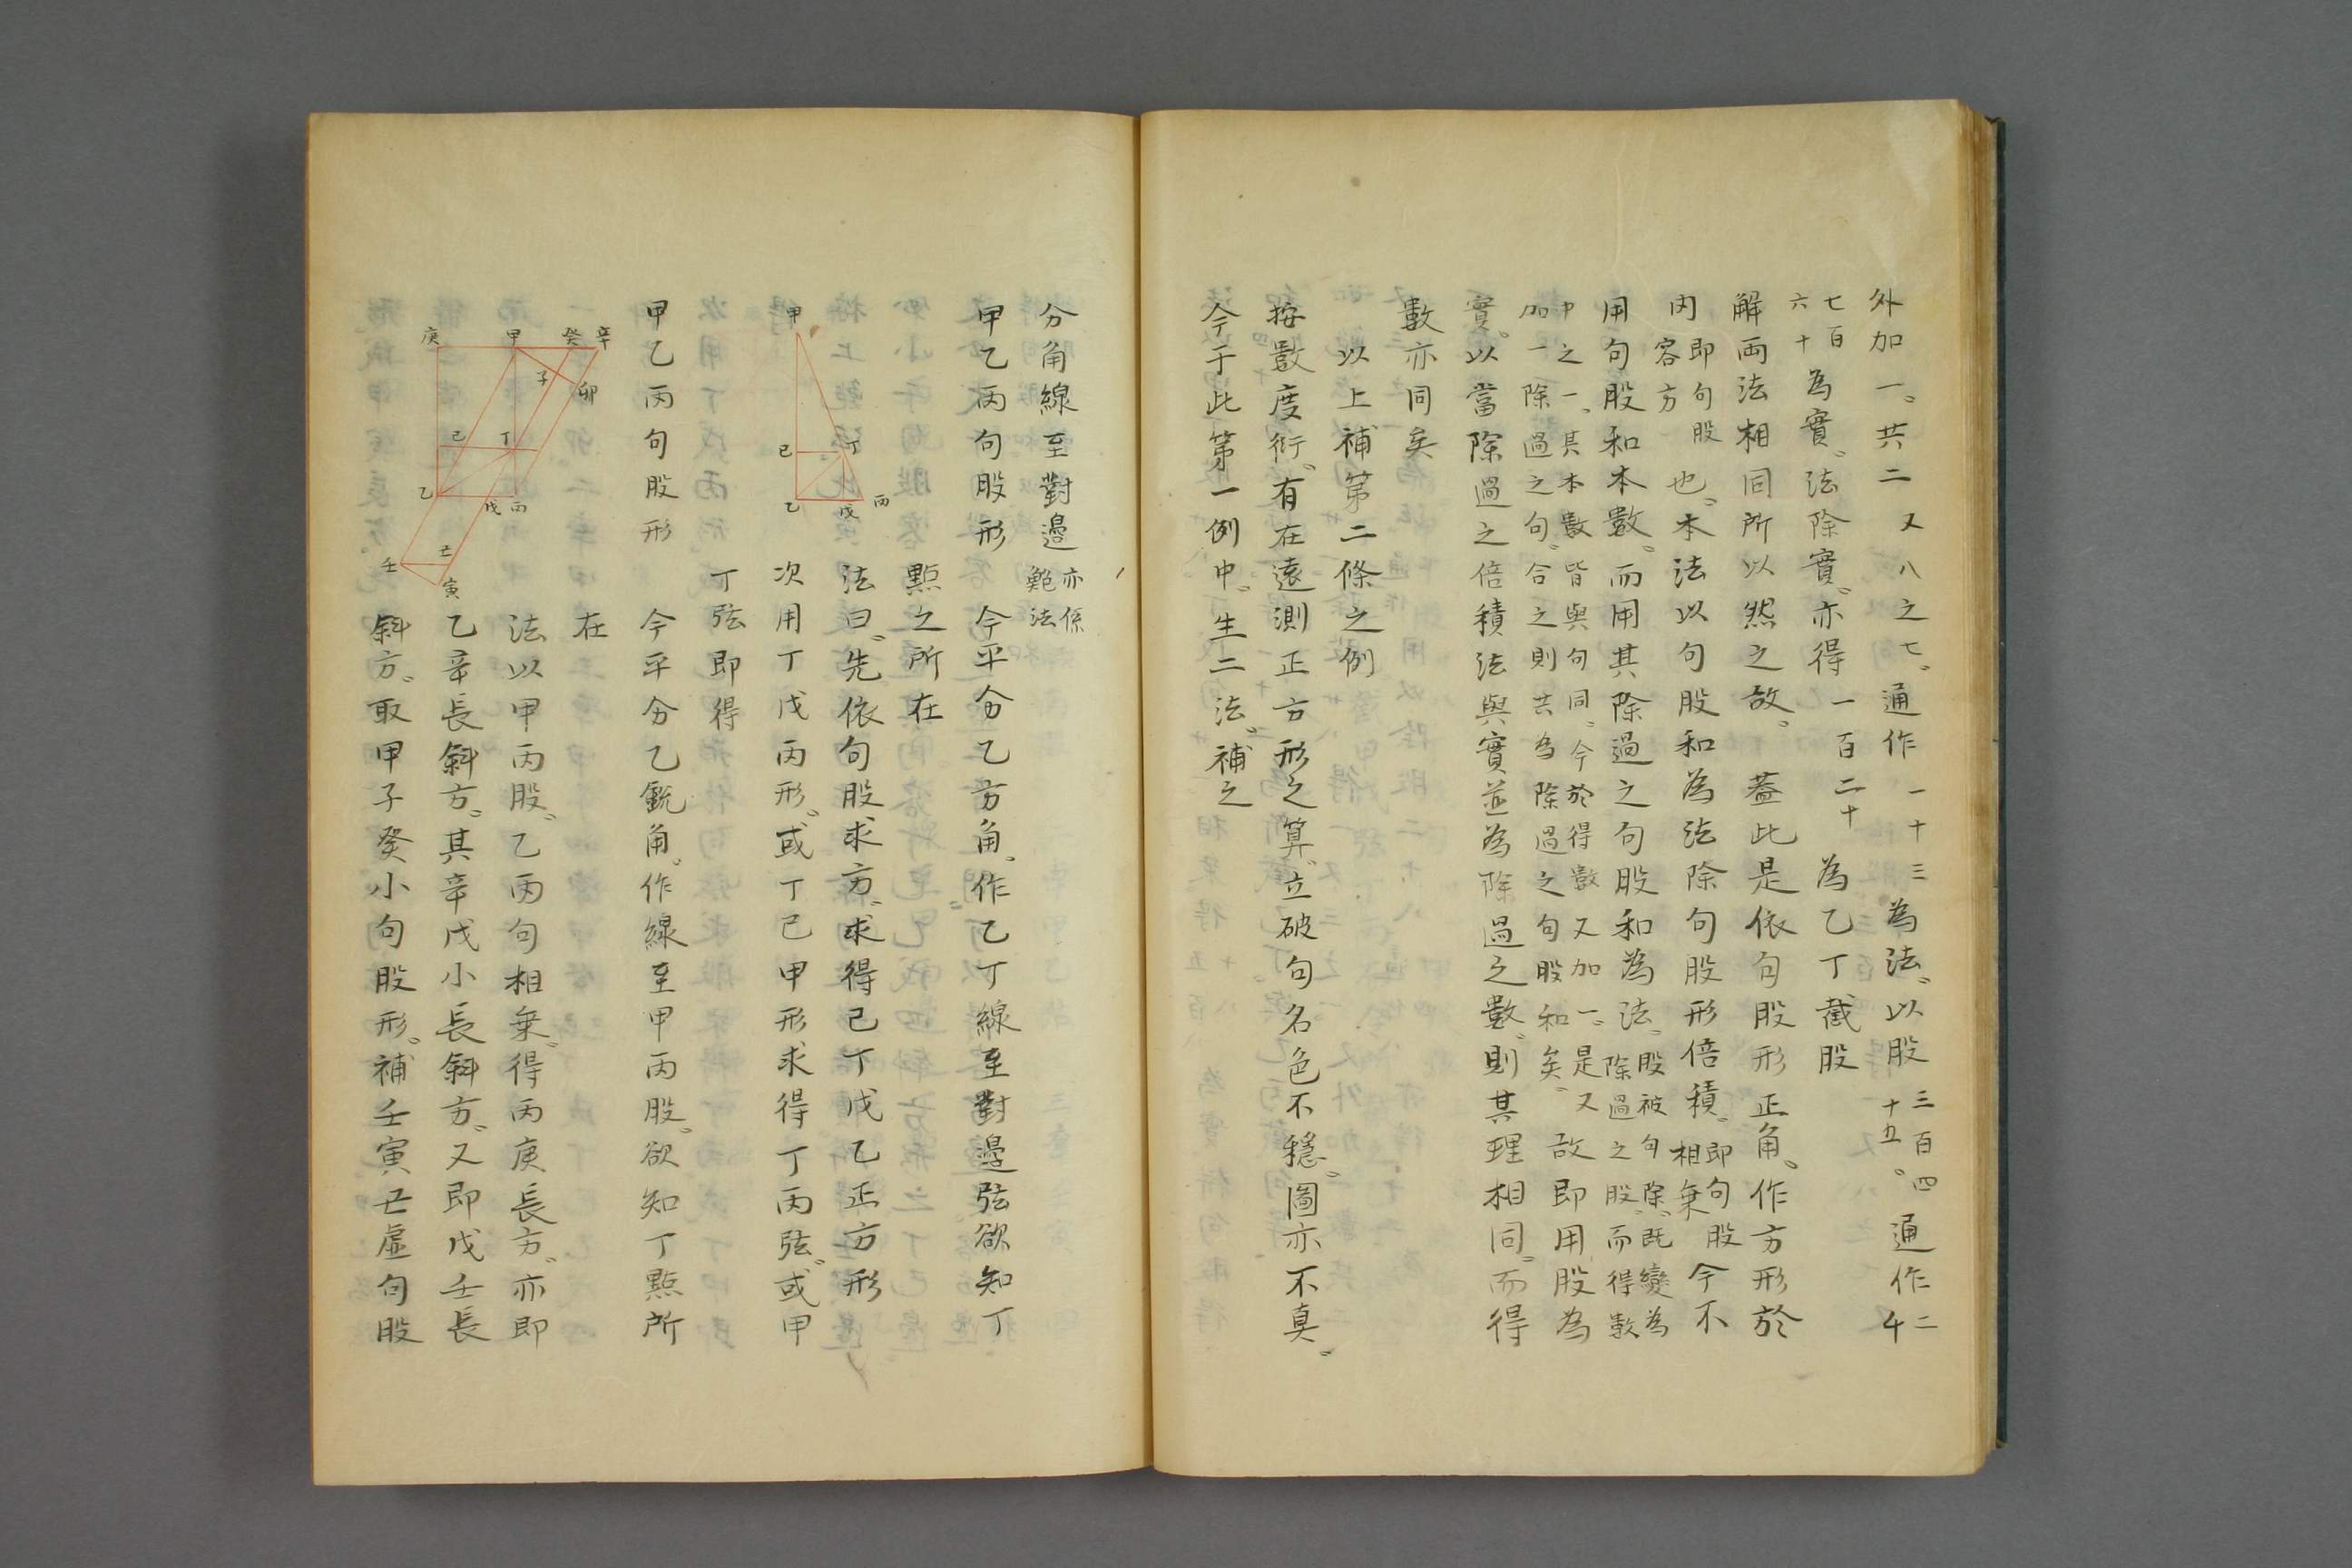 外加一。共二又八之七。通作一十三為法。以股三百四十五。通作二千
七百六十為實。法除實。亦得一百二十為乙丁截股
解兩法相同所以然之故。蓋此是依句股形正角。作方形於
內即句股容方也。本法以句股和為法除句股形倍積。即句股相乗今不
用句股和本數。而用其除過之句股和為法。股被句除。既變為除過之股。而得數
中之一。其本數皆與句同。今於得數又加一。是又加一除過之句。合之則共為除過之句股和矣。故即用股為
實。以當除過之倍積法與實並為除過之數。則其理相同。而得
數亦同矣
以上補第二條之例
按數度衍。有在遠測正方形之算。立破句名色不穩。圖亦不真。
今于此第一例中。生二法。補之
分角線至對邊亦係鮑法
甲乙丙句股形
今平分乙方角。作乙丁線至對邊弦欲知丁
點之所在
法曰。先依句股求方。求得己丁戊乙正方形
次用丁戊丙形。或丁己甲形求得丁丙弦。或甲
丁弦即得
甲乙丙句股形
今平分乙銳角。作線至甲丙股。欲知丁點所
在
法以甲丙股。乙丙句相乗。得丙庚長方。亦即
乙辛長斜方。其辛戊小長斜方。又即戊壬長
斜方。取甲子癸小句股形。補壬寅丑虛句股
甲
己
丁
乙
戊
丙
庚
甲
癸
辛
子
卯
己
丁
乙
戊
丙
壬
丑
寅